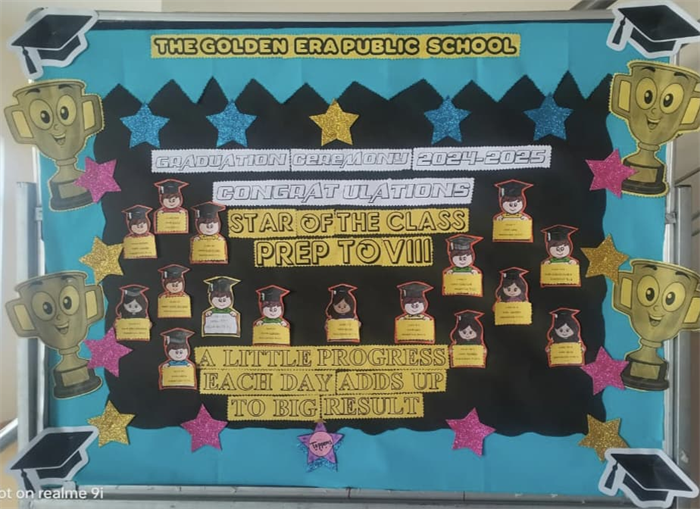 THE GOLDEN ERA PUBLIC SCHOOL
GRADUATION CEREMONY 2024-2025
CONGRATULATIONS
STAR OF THE CLASS
PREP TO VIII
A LITTLE PROGRESS
EACH DAY ADDS UP
TO BIG RESULT
Toppers
ot on realme 9i